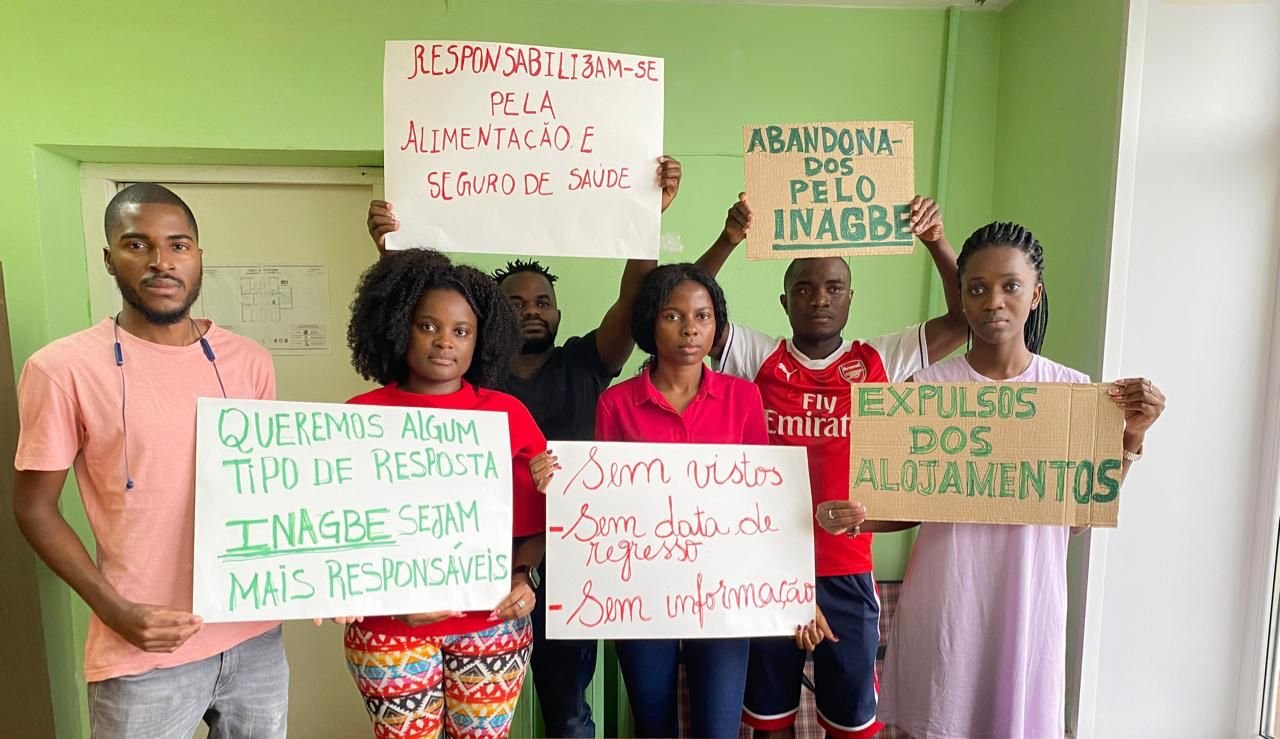 RESPONSABILIZAM-SE
PELA
ALIMENTAÇÃO E
SEGURO DE SAÚDE
ABANDONA-
DOS
PELO
INAGBE
QUEREMOS ALGUM
TIPO DE RESPOSTA
INAGBE SEJAM
MAIS RESPONSÁVEIS
- Sem vistos
- Sem data de
regresso.
- Sem informação
EXPULSOS
DOS
ALOJAMENTOS
Arsenal
Fly
Emirat